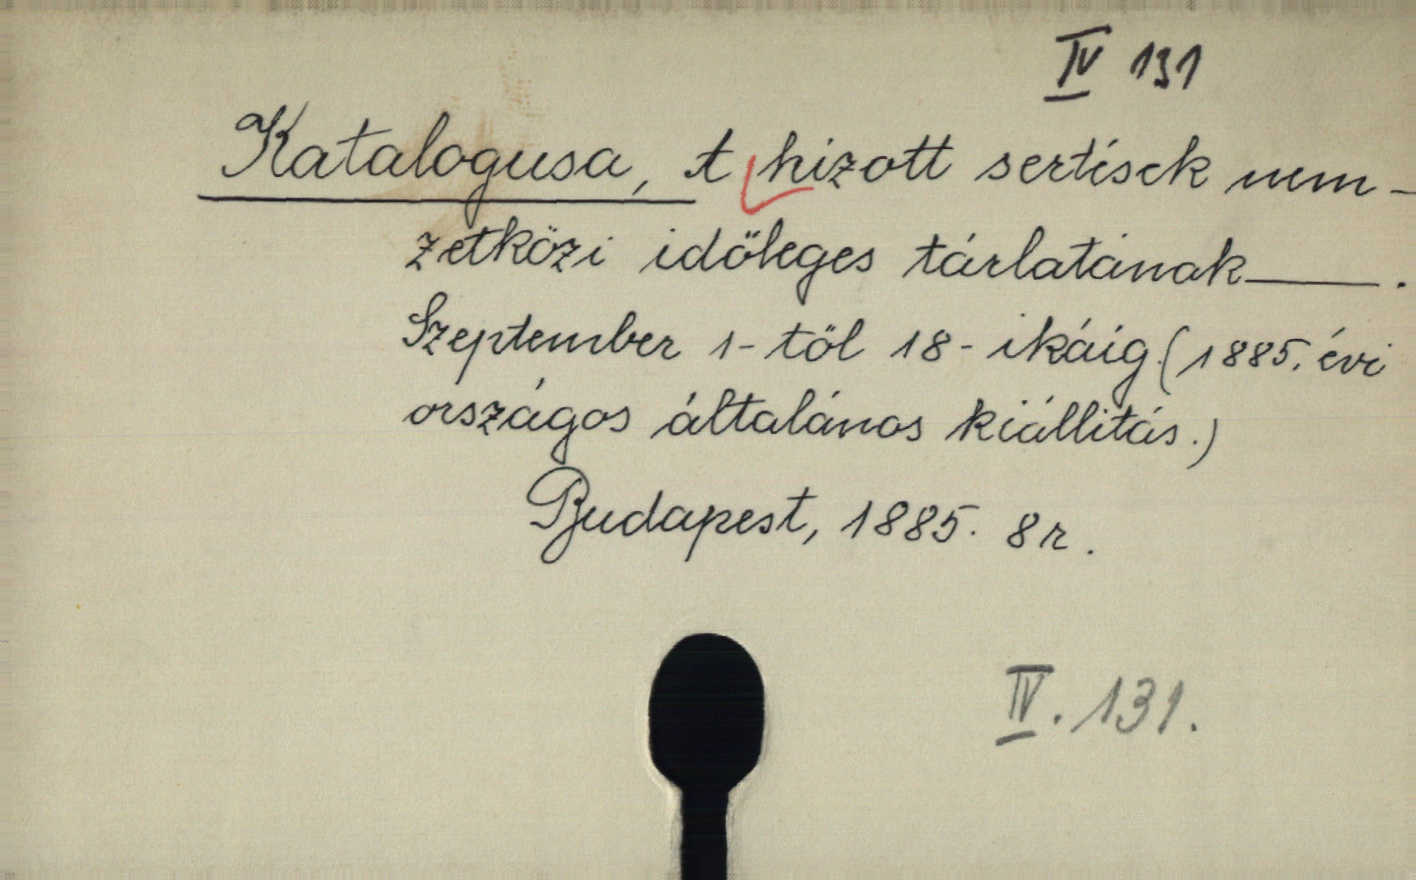 IV 131
Katalogusa, A hizott sertések nem-
zetközi időleges tárlatának—.
Szeptember 1-től 18-ikáig. (1885. évi
országos általános kiállitás.)
Budapest, 1885. 8r.
IV. 131.